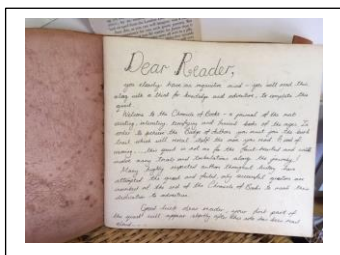 Dear Reader,
you clearly have an inquisitive mind - you will need this
along with a thirst for knowledge and adventure, to complete the
quest.
Welcome to the Chronicle of Books - a journal of the most
exciting, interesting, and ancient books of the ages. To
order to achieve the Badge of you must
which will reveal
coming... This quest is not one for the faint-hearted and will
involve many Trials and Tribulations along the journey!
Many highly respected authors throughout history have
attempted the quest and failed, only successful questors are
at the end of the Chronicle of Books to
dedication to adventure.
Good luck dear reader, your first part of
the quest will appear shortly after this note has been read
aloud...